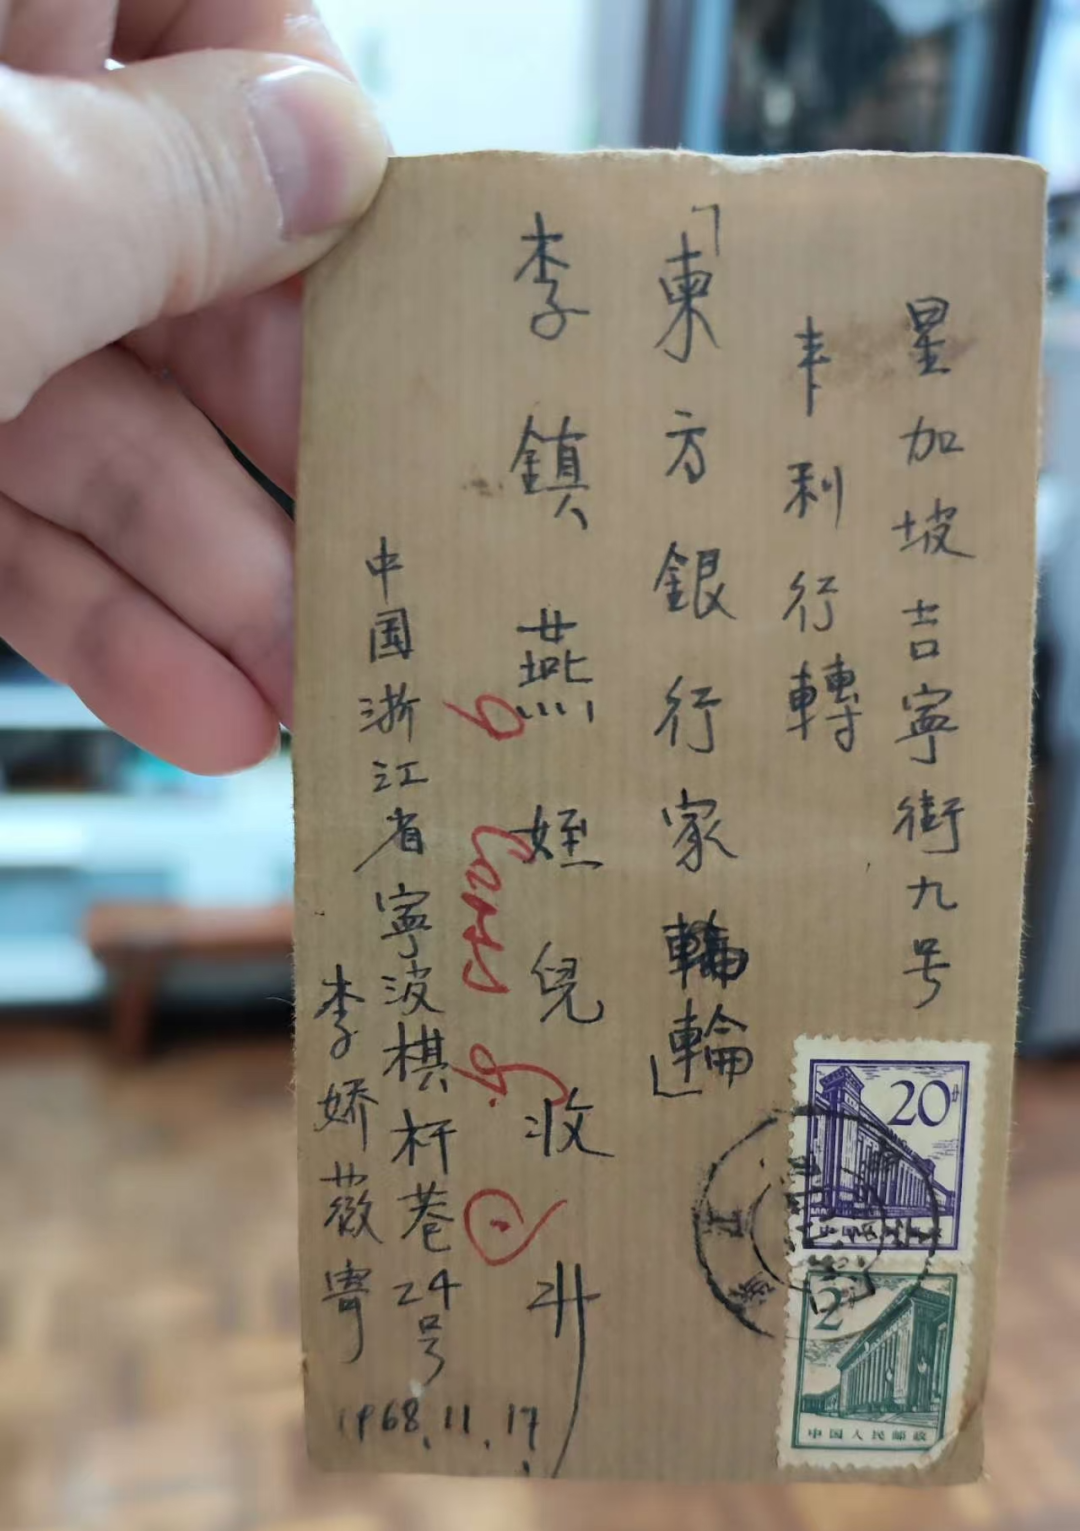 星加坡吉寧街九号
丰利行轉
「東方銀行家輪」
李鎮燕姪兒收
中国浙江省寧波棋杆巷24号
李娇薇寄
1968.11.17
20分
2
中国人民邮政
浙江